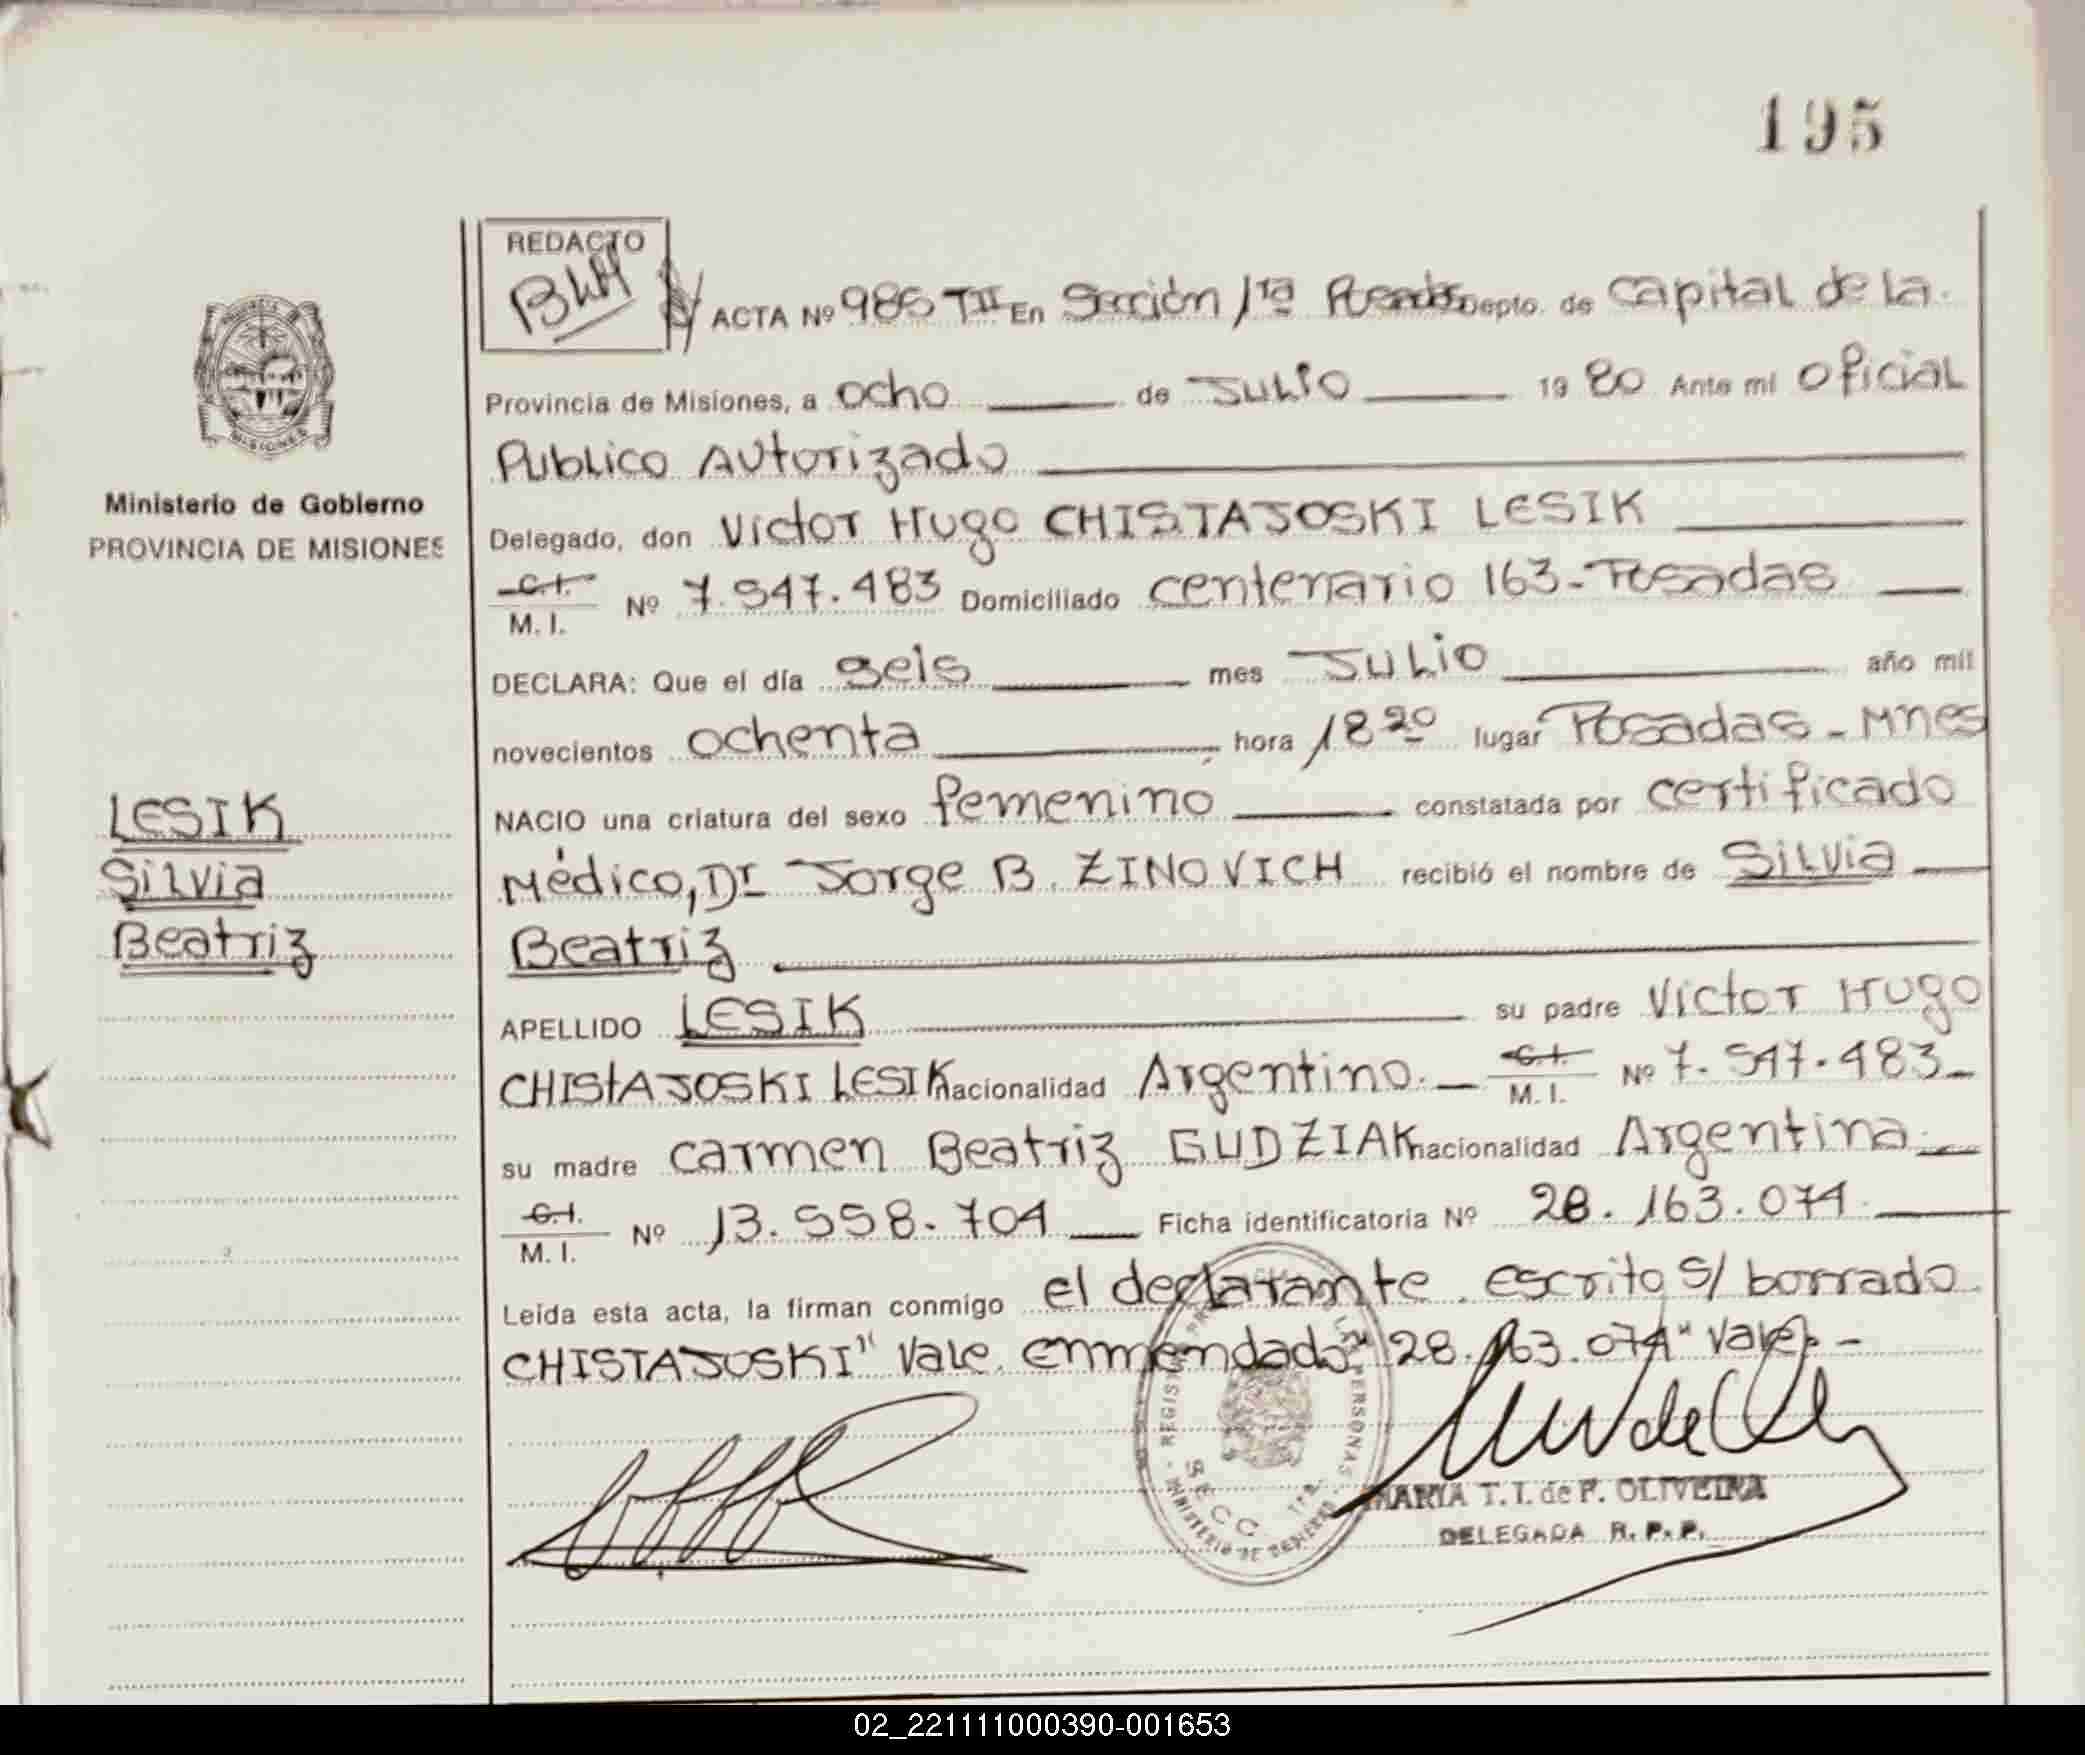 195
REDACTO
BLH
ACTA Nº 985 TII En Sección 1ra Posadas Depto. de Capital de la
Provincia de Misiones, a ocho de Julio 1980 Ante mi Oficial
Publico Autorizado
Delegado, don Victor Hugo CHISTAJOSKI LESIK
C.I. M. I. Nº 7.547.483 Domiciliado centenario 163 - Posadas
DECLARA: Que el día seis mes Julio año mil
novecientos ochenta hora 18 20 lugar Posadas - Mnes
NACIO una criatura del sexo femenino constatada por certificado
Médico, Dr Jorge B. ZINOVICH recibió el nombre de Silvia
Beatriz
APELLIDO LESIK su padre Victor Hugo
CHISTAJOSKI LESIK nacionalidad Argentino. C.I. M. I. Nº 7.547.483
su madre Carmen Beatriz GUDZIAK nacionalidad Argentina
C.I. M. I. Nº 13.558.704 Ficha identificatoria Nº 28.163.074
Leída esta acta, la firman conmigo el declarante. escrito s/ borrado
CHISTAJOSKI" Vale. enmendado "28.163.074" Vale. -
MARIA T. I. de F. OLIVEIRA
DELEGADA R. P. P.
Ministerio de Gobierno
PROVINCIA DE MISIONES
LESIK
Silvia
Beatriz
02_221111000390-001653